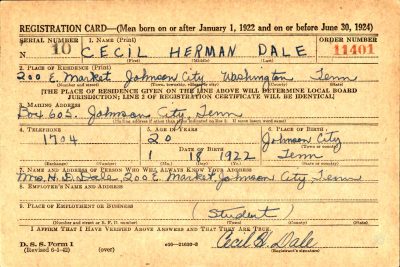 REGISTRATION CARD—(Men born on or after January 1, 1922 and on or before June 30, 1924)
SERIAL NUMBER 1. NAME (Print) ORDER NUMBER
N 10 CECIL HERMAN DALE 11401
(First) (Middle) (Last)
2. PLACE OF RESIDENCE (Print)
200 E. Market Johnson City Washington Tenn
(Number and street) (Town, township, village, or city) (County) (State)
[THE PLACE OF RESIDENCE GIVEN ON THE LINE ABOVE WILL DETERMINE LOCAL BOARD
JURISDICTION; LINE 2 OF REGISTRATION CERTIFICATE WILL BE IDENTICAL]
3. MAILING ADDRESS
Box 605. Johnson City, Tenn
(Mailing address if other than place indicated on line 2. If same insert word same)
4. TELEPHONE 5. AGE IN YEARS 6. PLACE OF BIRTH
1704 20 Johnson City
DATE OF BIRTH (Town or county)
1 18 1922 Tenn
(Exchange) (Number) (Mo.) (Day) (Yr.) (State or country)
7. NAME AND ADDRESS OF PERSON WHO WILL ALWAYS KNOW YOUR ADDRESS
H. D. Dale, 200 E. Market, Johnson City, Tenn
8. EMPLOYER'S NAME AND ADDRESS
9. PLACE OF EMPLOYMENT OR BUSINESS
(Student)
(Number and street or R. F. D. number) (Town) (County) (State)
I AFFIRM THAT I HAVE VERIFIED ABOVE ANSWERS AND THAT THEY ARE TRUE.
D. S. S. Form 1
(Revised 6-9-42) (over) 16—21630-2 Cecil H. Dale
(Registrant's signature)